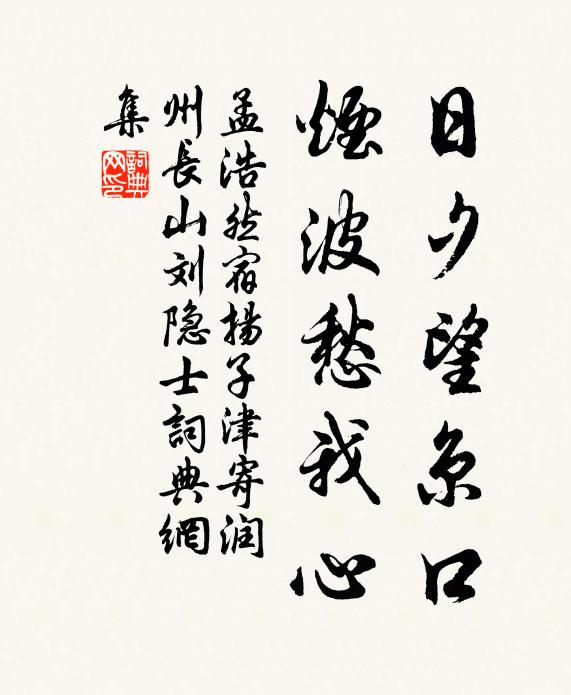 日夕望京口
煙波愁我心
孟浩然宿揚子津寄润
州長山刘隐士詞典網
集
詞典
网印